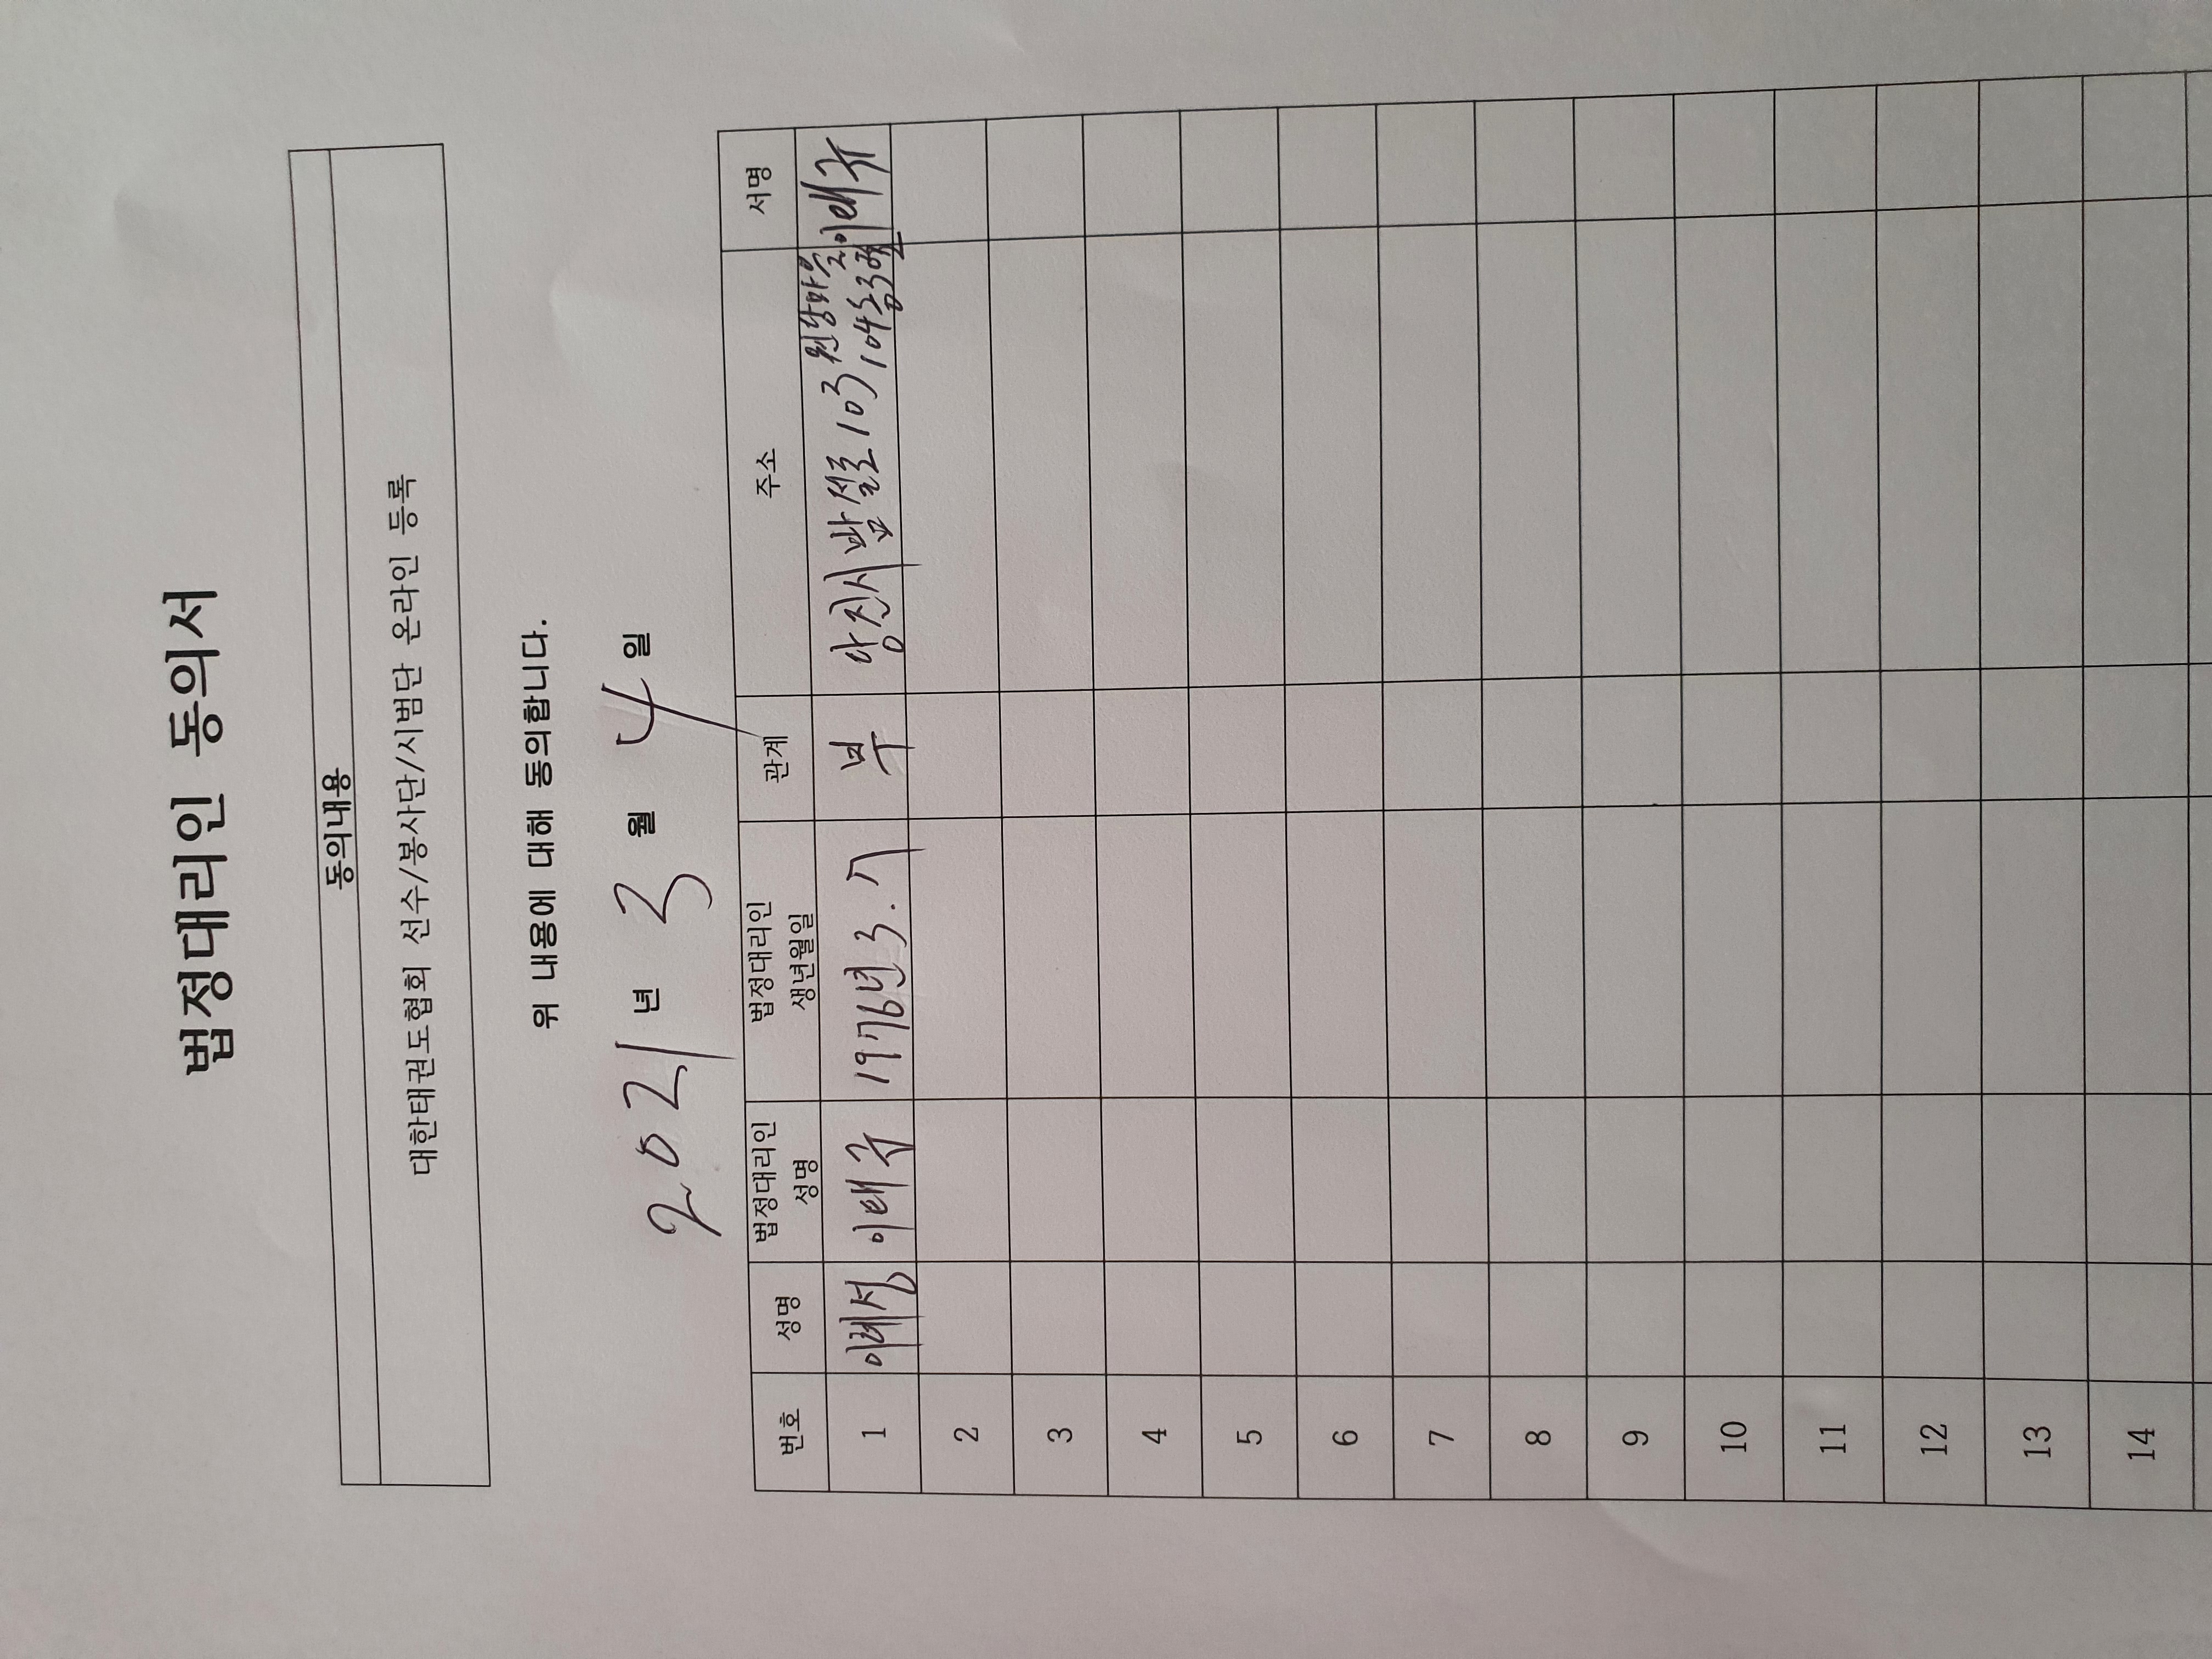 법정대리인 동의서
동의내용
대한태권도협회 선수/봉사단/시범단 온라인 등록
위 내용에 대해 동의합니다.
2021 년 3 월 4 일
번호 성명 법정대리인 성명 법정대리인 생년월일 관계 주소 서명
1 이예성 이태규 1976년 3. 7 부 당진시 밤절로 103 원당마을 104동 이태규
2
3
4
5
6
7
8
9
10
11
12
13
14